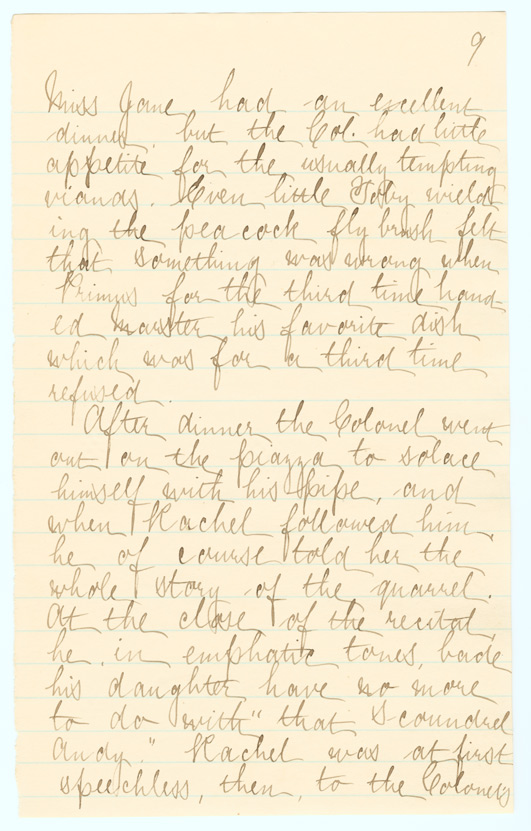 9
Miss Jane had an excellent
dinner, but the Col. had little
appetite for the usually tempting
viands. Even little Toby wield-
ing the peacock fly brush felt
that something was wrong when
Primus for the third time hand-
ed Marster his favorite dish
which was for a third time
refused.
After dinner the Colonel went
out on the piazza to solace
himself with his pipe, and
when Rachel followed him,
he of course told her the
whole story of the quarrel.
At the close of the recital,
he, in emphatic tones, bade
his daughter have no more
to do with "that scoundrel
Andy." Rachel was at first
speechless, then, to the Colonel's